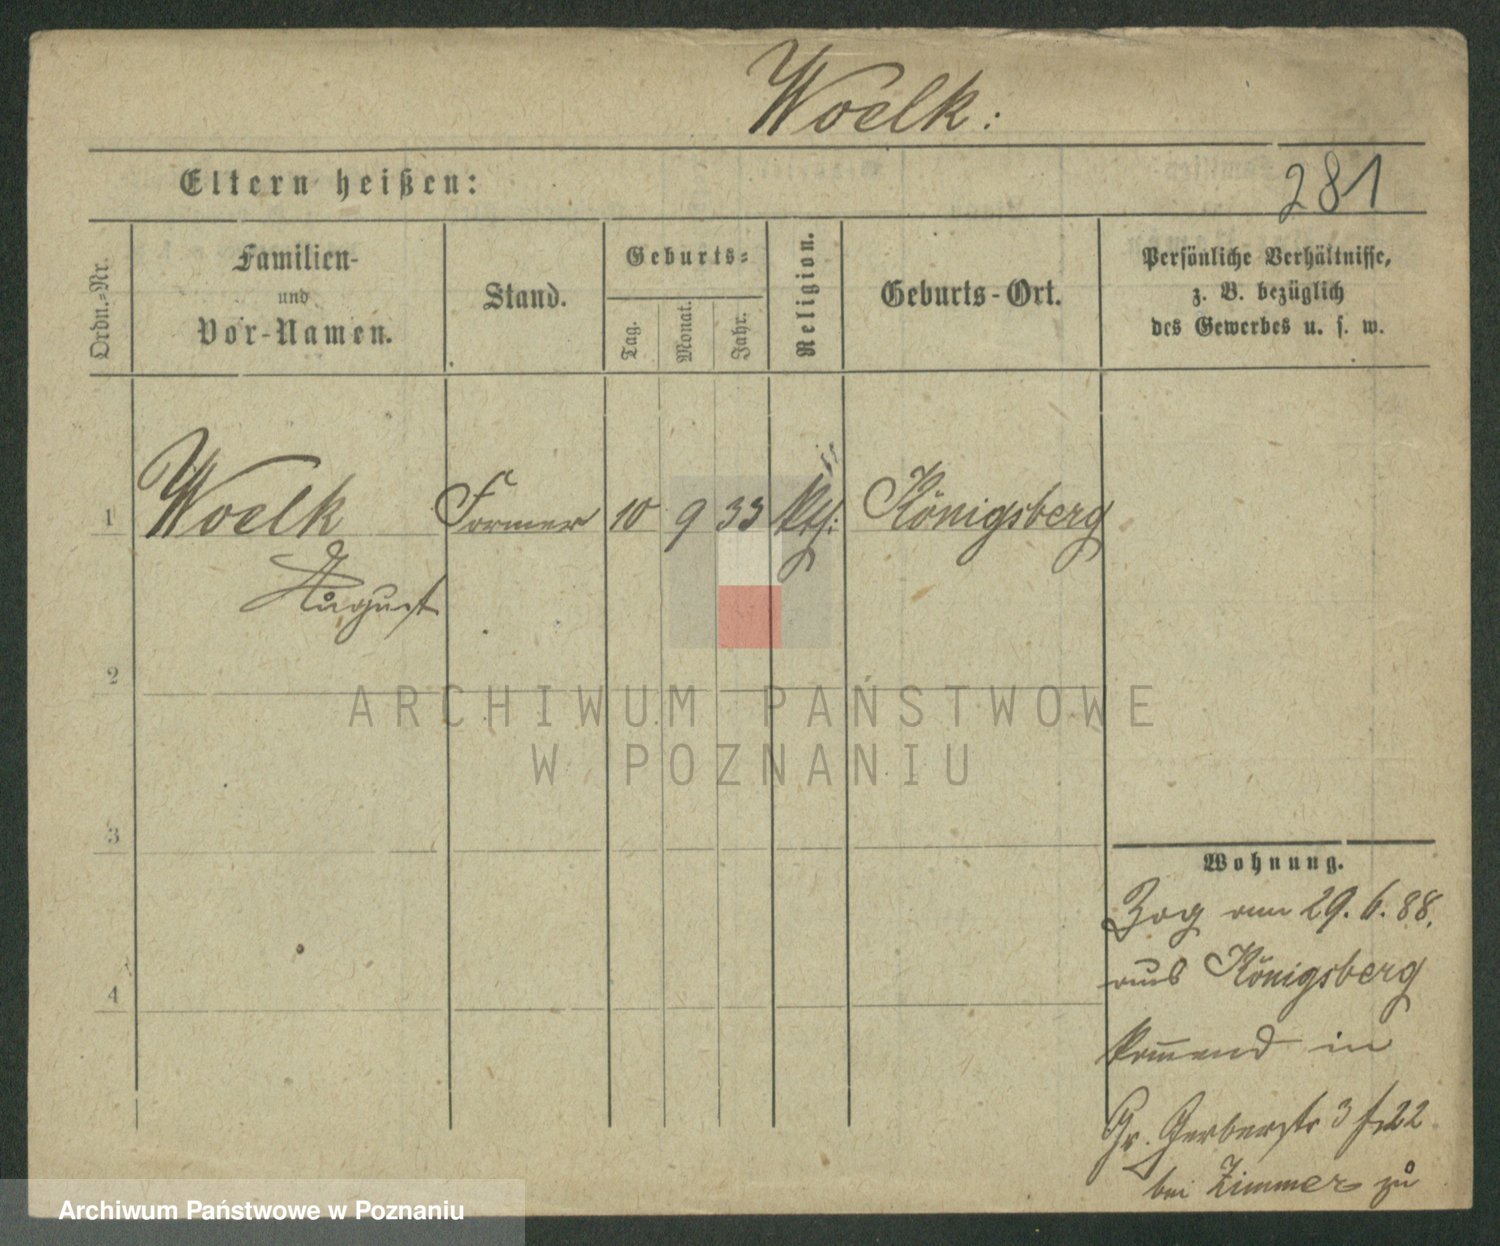 Woelk:
Eltern heißen:
281
Ordn.-Nr.
Familien-
und
Vor-Namen.
Stand.
Geburts-
Tag.
Monat.
Jahr.
Religion.
Geburts-Ort.
Persönliche Verhältnisse,
z. B. bezüglich
des Gewerbes u. s. w.
1 Woelk Former 10 9 33 kth: Königsberg
August
2
3
4
Wohnung.
Zog am 29. 6. 88.
aus Königsberg
kom̅end in
Gr. Gerberstr 3 22
bei Zimmer zu
ARCHIWUM PAŃSTWOWE
W POZNANIU
Archiwum Państwowe w Poznaniu